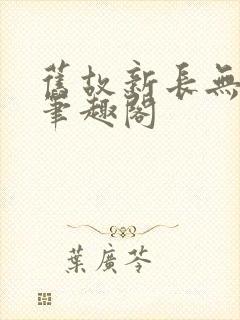 舊故新長無
筆趣閣
葉廣芩